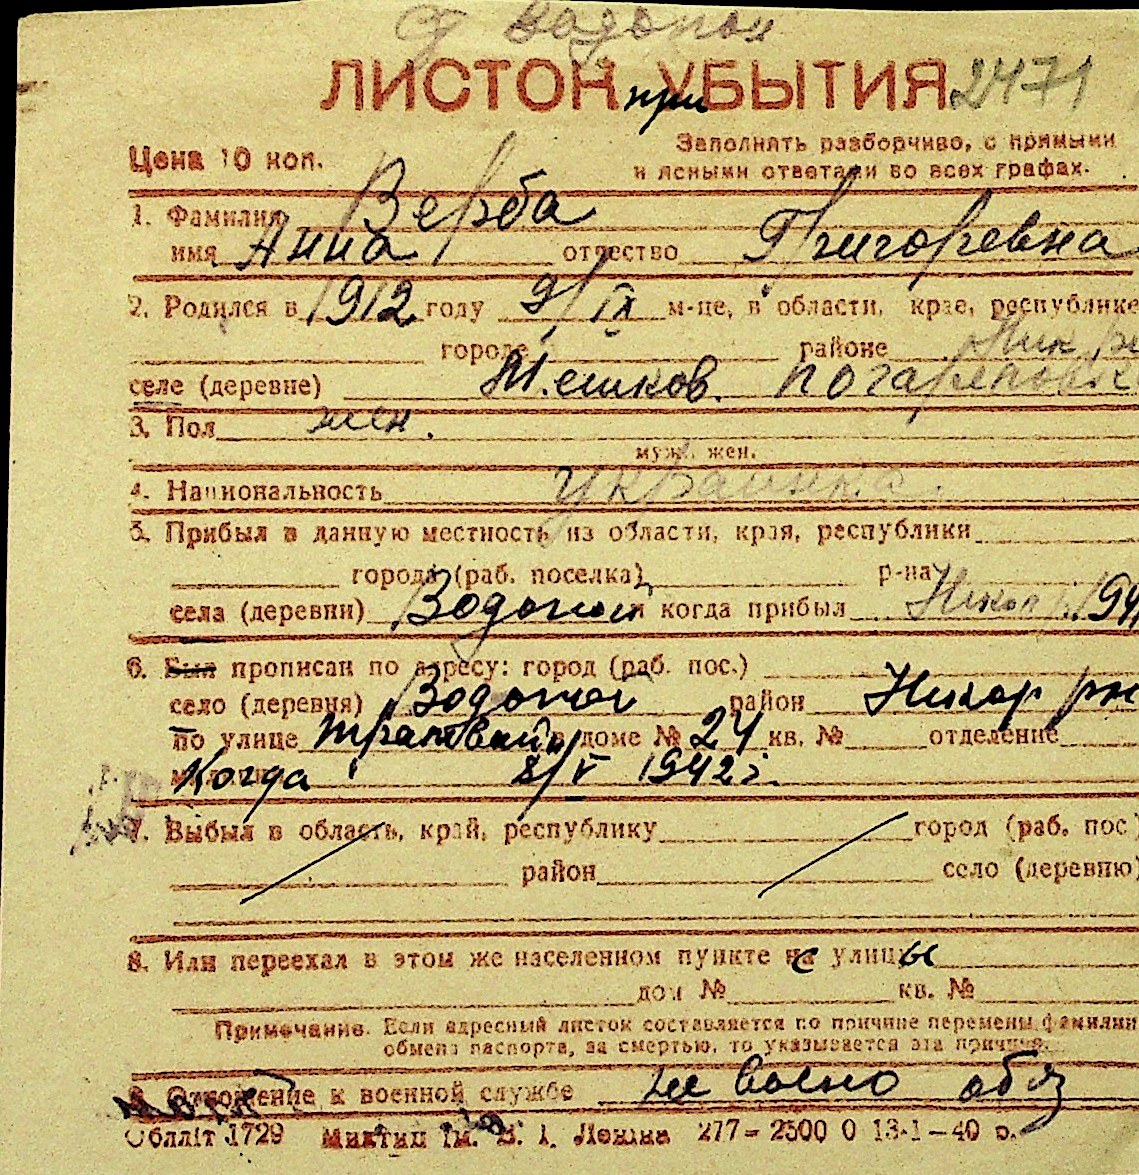 Водопой
ЛИСТОК при УБЫТИЯ 2471
Цена 10 коп.
Заполнять разборчиво, с прямыми
и ясными ответами во всех графах.
1. Фамилия Верба
имя Анна отчество Григоревна
2. Родился в 1912 году 9/IX м-це, в области, крае, республике
городе районе Ник р
селе (деревне) М.ешков. погарелов
3. Пол жен.
муж. жен.
4. Национальность украинка.
5. Прибыл в данную местность из области, края, республики
города (раб. поселка) р-на
села (деревни) Водопой и когда прибыл 194
6. Был прописан по адресу: город (раб. пос.)
село (деревня) Водопой район Никол рн
по улице трамвайн в доме № 24 кв. № отделение
Когда 8/V 1942 г.
7. Выбыл в область, край, республику город (раб. пос
район село (деревню)
8. Или переехал в этом же населенном пункте с улицы
дом № кв. №
Примечание. Если адресный листок составляется по причине перемены фамилии
обмена паспорта, за смертью, то указывается эта причина.
9. Отношение к военной службе не воено обяз
Обллiт 1729 Миктип iм. В. I. Ленiна 277–2500 0 13-1–40 р.